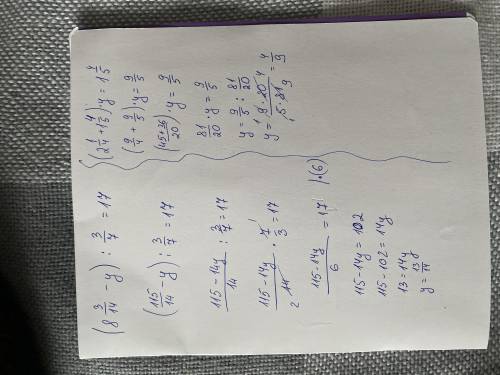 (8 3/14 - y) : 3/7 = 17
(115/14 - y) : 3/7 = 17
115-14y/14 : 3/7 = 17
115-14y/14 2 · 7 1/3 = 17
115-14y/6 = 17 | ·(6)
115-14y = 102
115-102 = 14y
13 = 14y
y = 13/14
(2 1/4 + 1 4/5) · y = 1 4/5
(9/4 + 9/5) · y = 9/5
(45+36/20) · y = 9/5
81/20 · y = 9/5
y = 9/5 : 81/20
y = 1 9·20 4/1 5·81 9 = 4/9